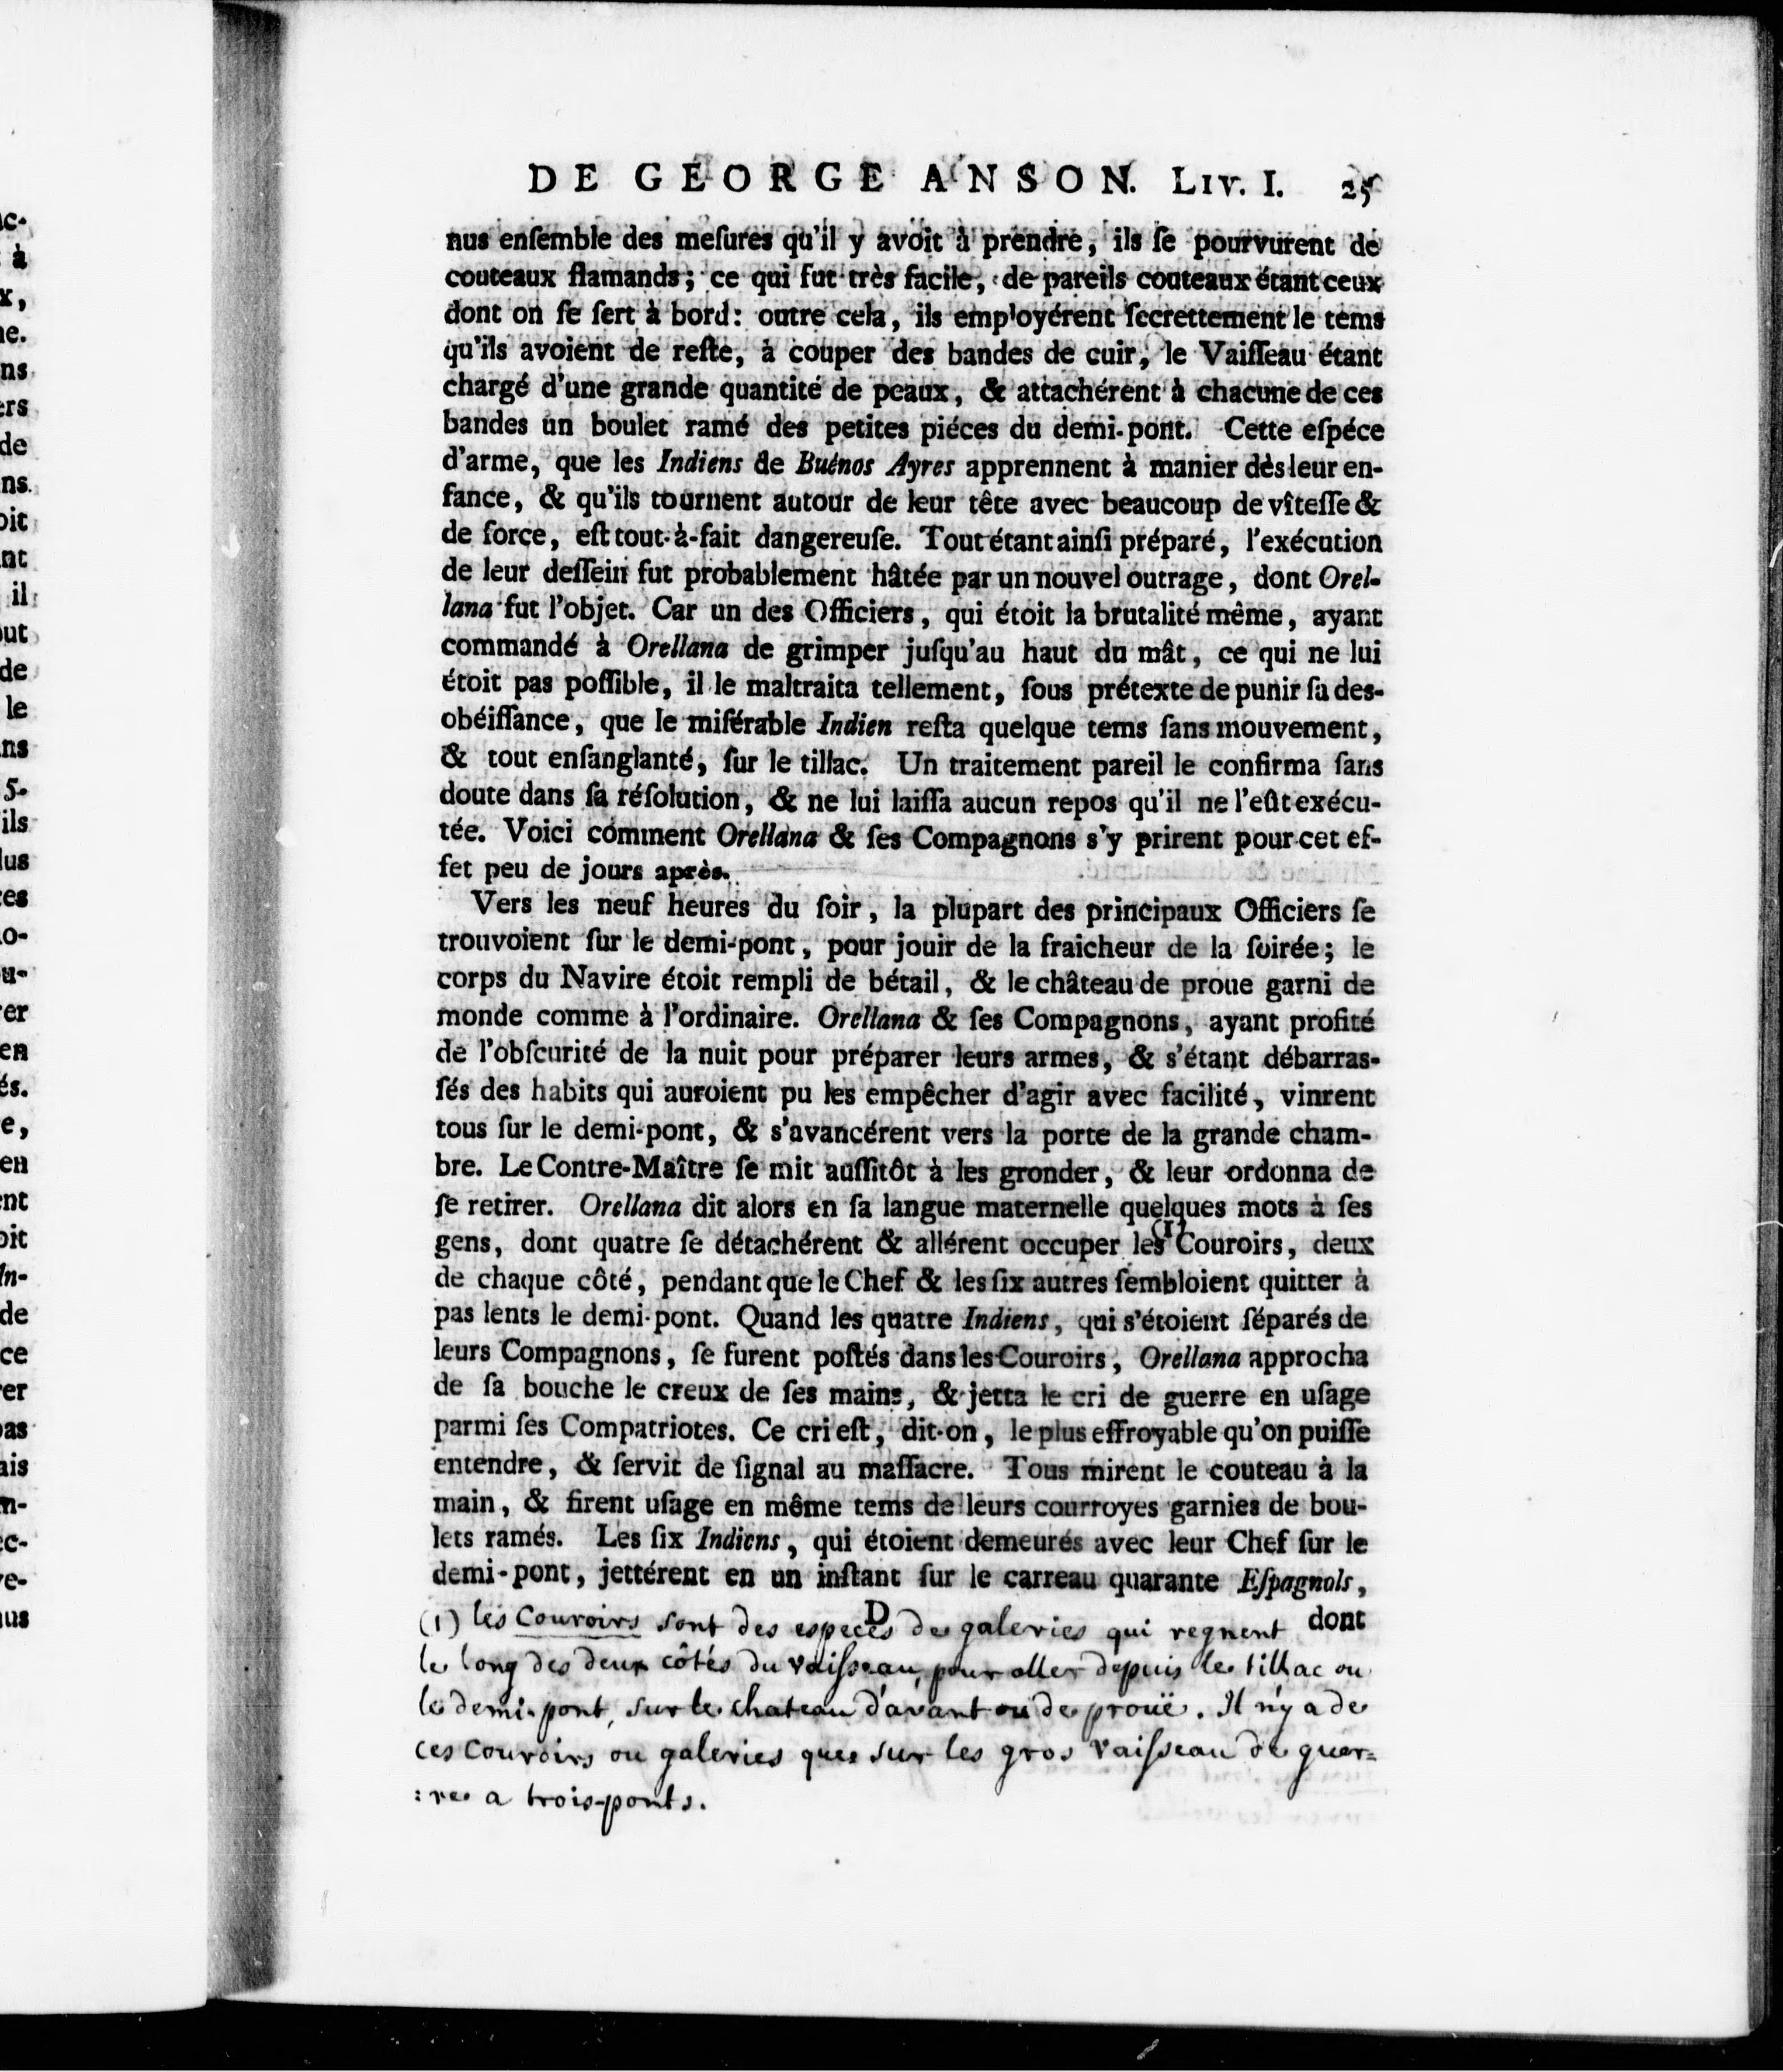 DE GEORGE ANSON. LIV. I. 25
nus enſemble des meſures qu'il y avoit à prendre, ils ſe pourvurent de
couteaux flamands; ce qui fut très facile, de pareils couteaux étant ceux
dont on ſe ſert à bord: outre cela, ils employérent ſecrettement le tems
qu'ils avoient de reſte, à couper des bandes de cuir, le Vaiſſeau étant
chargé d'une grande quantité de peaux, & attachérent à chacune de ces
bandes un boulet ramé des petites piéces du demi-pont. Cette eſpéce
d'arme, que les Indiens de Buénos Ayres apprennent à manier dès leur en-
fance, & qu'ils tournent autour de leur tête avec beaucoup de vîteſſe &
de force, eſt tout-à-fait dangereuſe. Tout étant ainſi préparé, l'exécution
de leur deſſein fut probablement hâtée par un nouvel outrage, dont Orel-
lana fut l'objet. Car un des Officiers, qui étoit la brutalité même, ayant
commandé à Orellana de grimper juſqu'au haut du mât, ce qui ne lui
étoit pas poſſible, il le maltraita tellement, ſous prétexte de punir ſa des-
obéiſſance, que le miſérable Indien reſta quelque tems ſans mouvement,
& tout enſanglanté, ſur le tillac. Un traitement pareil le confirma ſans
doute dans ſa réſolution, & ne lui laiſſa aucun repos qu'il ne l'eût exécu-
tée. Voici comment Orellana & ſes Compagnons s'y prirent pour cet ef-
fet peu de jours après.
Vers les neuf heures du ſoir, la plupart des principaux Officiers ſe
trouvoient ſur le demi-pont, pour jouir de la fraicheur de la ſoirée; le
corps du Navire étoit rempli de bétail, & le château de proue garni de
monde comme à l'ordinaire. Orellana & ſes Compagnons, ayant profité
de l'obſcurité de la nuit pour préparer leurs armes, & s'étant débarras-
ſés des habits qui auroient pu les empêcher d'agir avec facilité, vinrent
tous ſur le demi-pont, & s'avancérent vers la porte de la grande cham-
bre. Le Contre-Maître ſe mit auſſitôt à les gronder, & leur ordonna de
ſe retirer. Orellana dit alors en ſa langue maternelle quelques mots à ſes
gens, dont quatre ſe détachérent & allérent occuper les (1) Couroirs, deux
de chaque côté, pendant que le Chef & les ſix autres ſembloient quitter à
pas lents le demi-pont. Quand les quatre Indiens, qui s'étoient ſéparés de
leurs Compagnons, ſe furent poſtés dans les Couroirs, Orellana approcha
de ſa bouche le creux de ſes mains, & jetta le cri de guerre en uſage
parmi ſes Compatriotes. Ce cri eſt, dit-on, le plus effroyable qu'on puiſſe
entendre, & ſervit de ſignal au maſſacre. Tous mirent le couteau à la
main, & firent uſage en même tems de leurs courroyes garnies de bou-
lets ramés. Les ſix Indiens, qui étoient demeurés avec leur Chef ſur le
demi-pont, jettérent en un inſtant ſur le carreau quarante Eſpagnols,
D dont
(1) les Couroirs sont des especes de galeries qui regnent
le long des deux côtés du vaisseau, pour aller depuis le tillac ou
le demi-pont, sur le chateau d'avant ou de prouë. Il n'y a de
ces Couroirs ou galeries que sur les gros vaisseau de guer=
:re a trois-ponts.